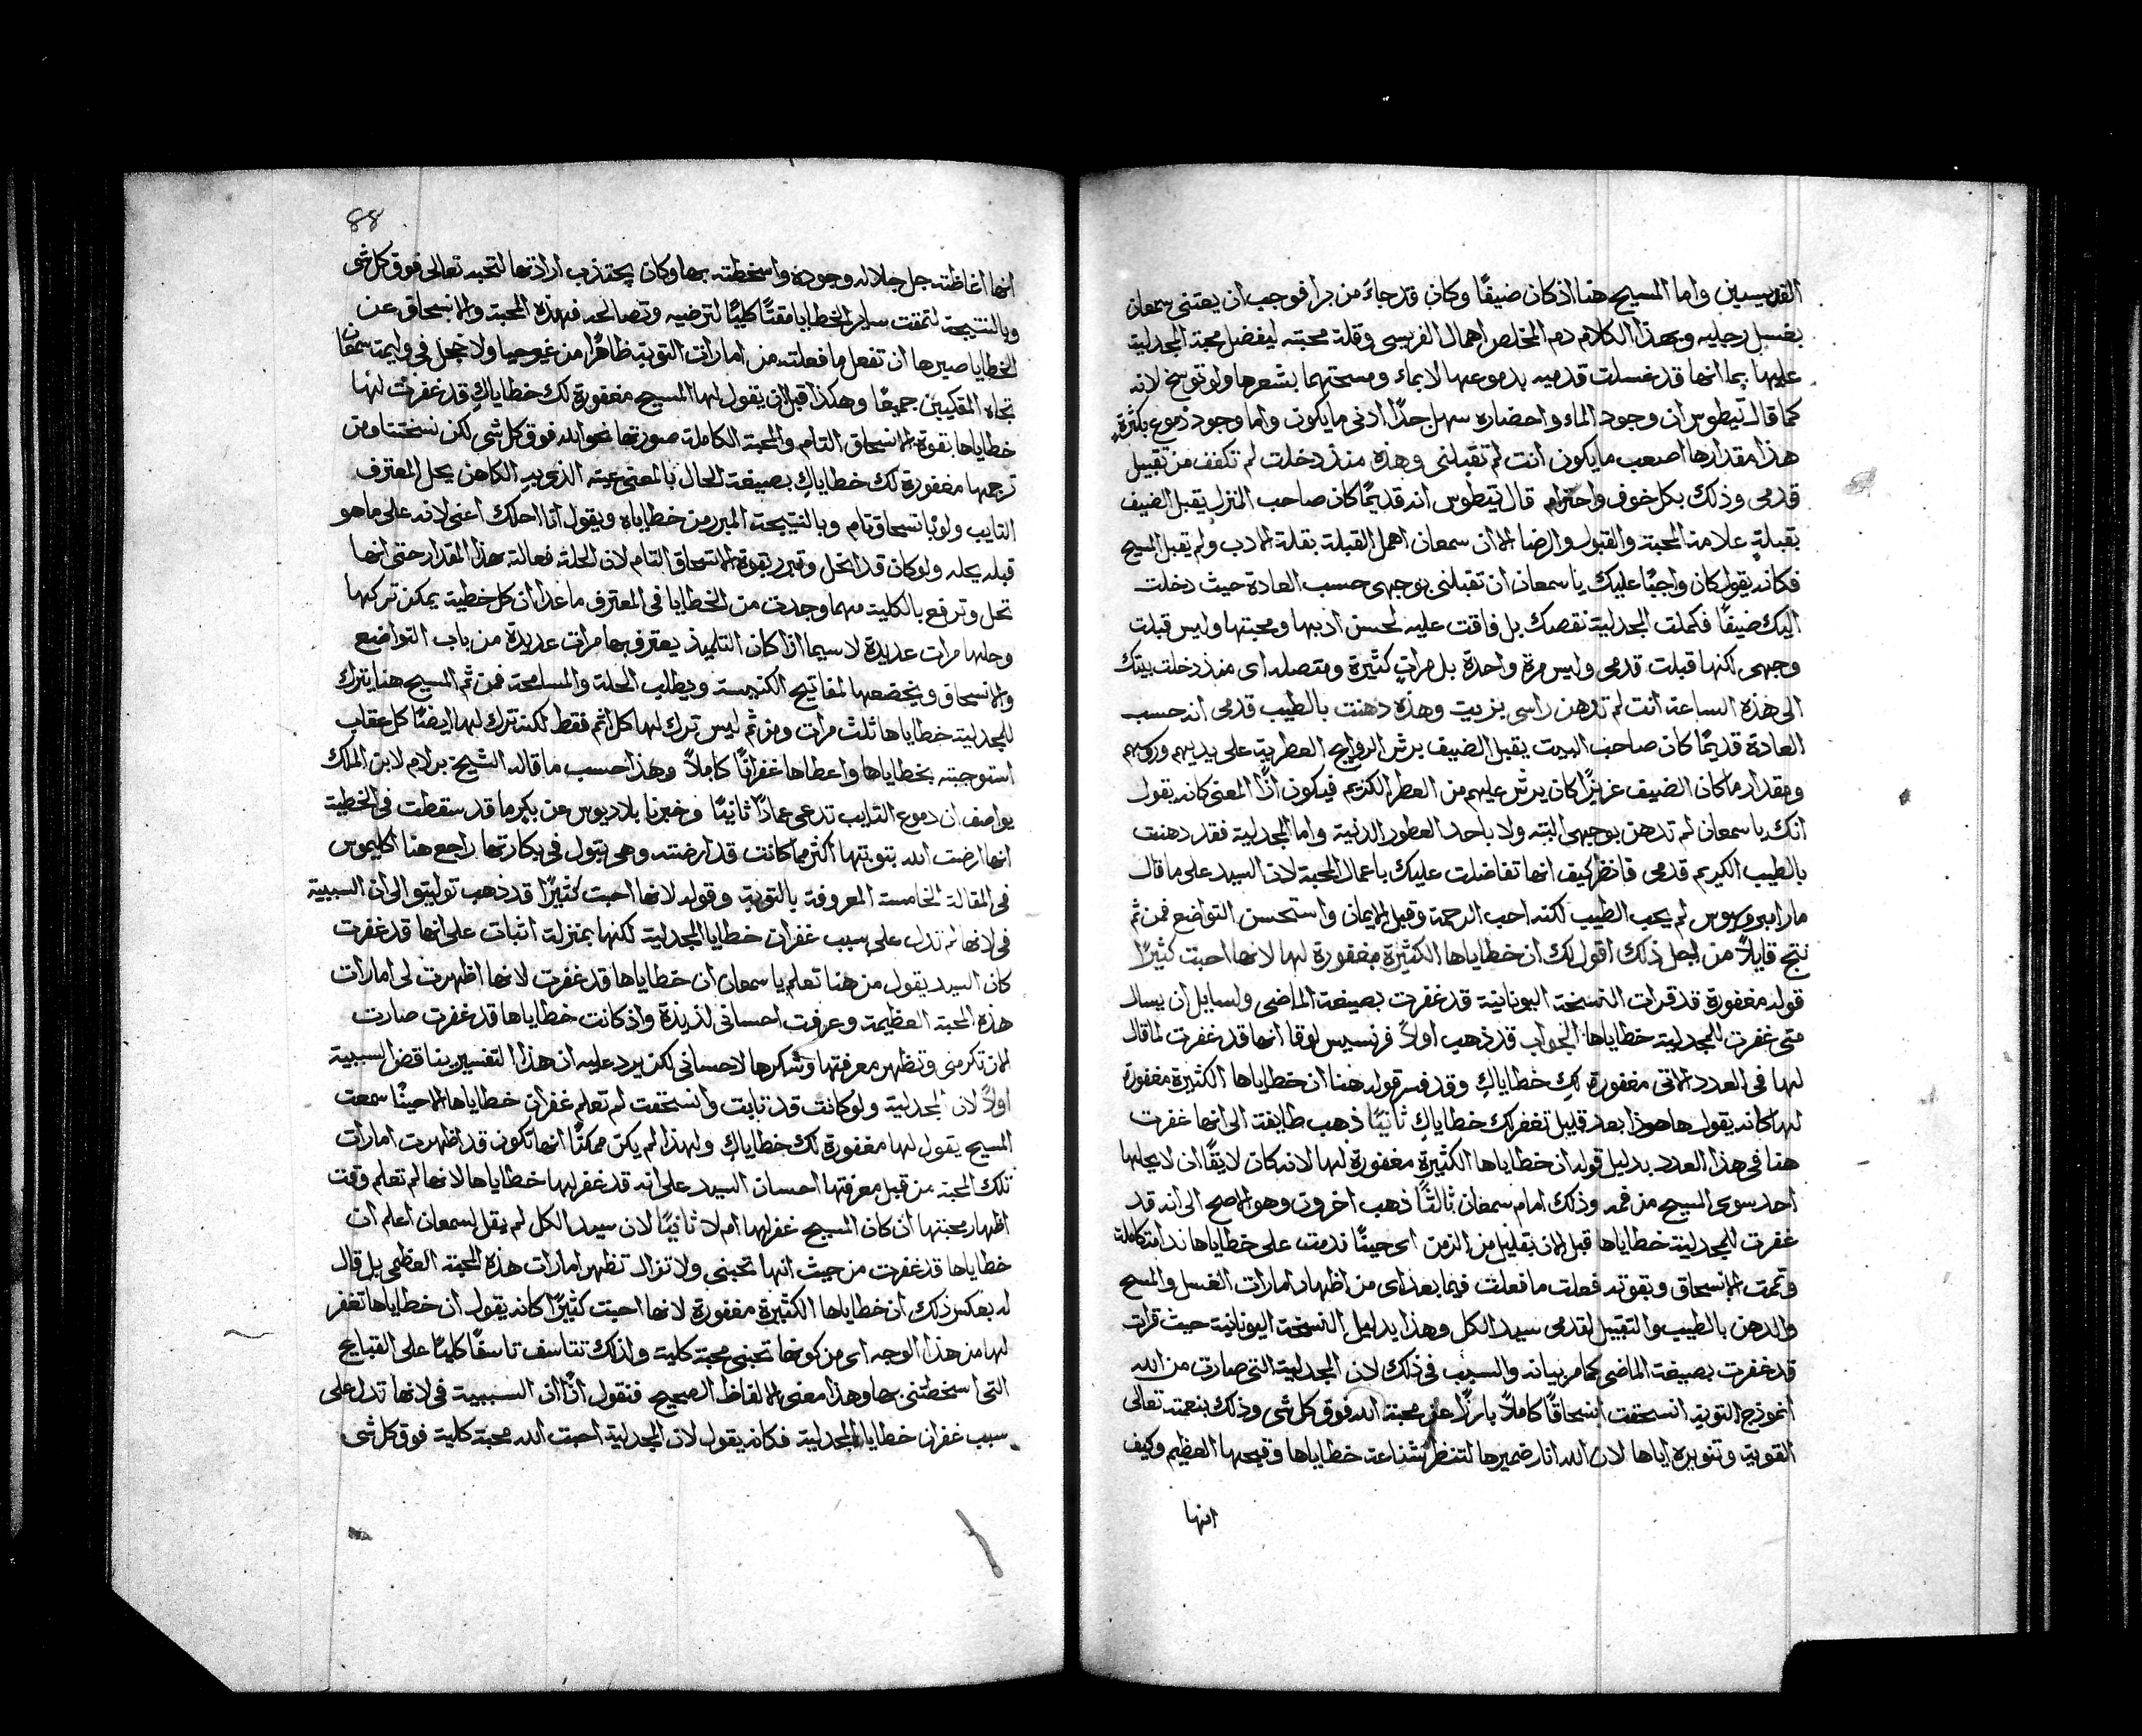 القديسين واما المسيح هنا اذ كان ضيفًا وكان قد جاء من برا فوجب ان يعتنى سمعان
بغسل رجليه وبهذا الكلام ذم المخلص اهمال الفريسى وقلة محبته ليفضل محبة المجدلية
عليها بما انها قد غسلت قدميه بدموعها لا بماء ومسحتهما بشعرها ولو توسخ لانه
كما قال تيطوس ان وجود الماء واحضاره سهل جدًا ادنى ما يكون واما وجود دموع بكثرةٍ
هذا مقدارها اصعب ما يكون انت لم تقبلنى وهذه منذ دخلت لم تكفف من تقبيل
قدمى وذلك بكل خوف واحترام قال تيطوس انه قديمًا كان صاحب المنزل يقبل الضيف
بقبلةٍ علامة المحبة والقبول والرضا الا ان سمعان اهمل القبلة بقلة الادب ولم يقبل المسيح
فكانه يقول كان واجبًا عليك يا سمعان ان تقبلنى بوجهى حسب العادة حيث دخلت
اليك ضيفًا فكملت المجدلية نقصك بل فاقت عليه لحسن ادبها ومحبتها وليس قبلت
وجهى لكنها قبلت قدمى وليس مرة واحدة بل مراتٍ كثيرة ومتصله اى منذ دخلت بيتك
الى هذه الساعة انت لم تدهن راسى بزيت وهذه دهنت بالطيب قدمى انه حسب
العادة قديمًا كان صاحب البيت يقبل الضيف برش الروايح العطرية على يديهم وروسهم
ومقدار ما كان الضيف عزيزًا كان يرش عليهم من العطر الكريم فيكون اذًا المعنى كانه يقول
انك يا سمعان لم تدهن بوجهى البته ولا باحد العطور الدنية واما المجدلية فقد دهنت
بالطيب الكريم قدمى فانظر كيف انها تفاضلت عليك باعمال المحبة لان السيد على ما قال
مار امبروسيوس لم يحب الطيب لكنه احب الرحمة وقبل الايمان واستحسن التواضع فمن ثم
نتج قايلاً من اجل ذلك اقول لك ان خطاياها الكثيرة مغفورة لها لانها احبت كثيرًا
قوله مغفورة قد قرات النسخة اليونانية قد غفرت بصيغة الماضى ولسايل ان يسال
متى غفرت للمجدلية خطاياها الجواب قد ذهب اولاً فرنسيس لوقا انها قد غفرت لما قال
لها فى العدد الاتى مغفورة لكِ خطاياكِ وقد فسر قوله هنا ان خطاياها الكثيرة مغفورة
لها كانه يقول هاهوذا بعد قليل تغفر لك خطاياكِ ثانيًا ذهب طايفة الى انها غفرت
هنا فى هذا العدد بدليل قوله ان خطاياها الكثيرة مغفورة لها لانه كان لايقًا ان لا يحلها
احد سوى المسيح من فمه وذلك امام سمعان ثالثًا ذهب اخرون وهو الاصح الى انه قد
غفرت للمجدلية خطاياها قبل الان بقليل من الزمن اى حينًا ندمت على خطاياها ندامة كاملة
وتمت الانسحاق وبقوته فعلت ما فعلت فيما بعد اى من اظهار امارات الغسل والمسح
والدهن بالطيب والتقبيل لقدمى سيد الكل وهذا بدليل النسخة اليونانية حيث قرات
قد غفرت بصيغة الماضى كما مر بيانه والسبب فى ذلك لان المجدلية التى صارت من الله
انموذج التوبة انسحقت انسحاقًا كاملاً بارزًا عن محبة الله فوق كل شى وذلك بنعمته تعالى
القوية وتنويره اياها لان الله انار ضميرها لتنظر شناعة خطاياها وقبحها العظيم وكيف
انها
88
انها اغاظته جل جلاله وجودة واسخطته بها وكان يجتذب ارادتها لتحبه تعالى فوق كل شى
وبالنتيجة لتمقت ساير الخطايا مقتًا كليًا لترضيه وتصالحه فهذه المحبة والانسحاق عن
الخطايا صيرها ان تفعل ما فعلته من امارات التوبة ظاهرًا من غير حيا ولا خجل فى وليمة سمعان
تجاه المتكيين جميعًا وهكذا قبل ان يقول لها المسيح مغفورة لك خطاياكِ قد غفرت لها
خطاياها بقوة الانسحاق التام والمحبة الكاملة صورتها نحو الله فوق كل شى لكن نسختنا ومن
ترجمها مغفورة لك خطاياكِ بصيغة الحال بالمعنى عينه الذى به الكاهن يحل المعترف
التايب ولو بانسحاق تام وبالنتيجة المبرر من خطاياه ويقول انا احلك اعنى لانه على ما هو
قبله يحله ولو كان قد انحل وتبرر بقوة الانسحاق التام لان الحلة فعالة بهذا المقدار حتى انها
تحل وترفع بالكلية مهما وجدت من الخطايا فى المعترف ما عدا ان كل خطية يمكن تركها
وحلها مرات عديدة لا سيما اذا كان التلميذ يعترف بها مرات عديدة من باب التواضع
والانسحاق ويخضعها لمفاتيح الكنيسة ويطلب الحلة والمسامحة فمن ثم المسيح هنا يترك
للمجدلية خطاياها ثلث مرات ومن ثم ليس ترك لها كل اثم فقط لكنه ترك لها ايضًا كل عقاب
استوجبته بخطاياها واعطاها غفرانًا كاملاً وهذا حسب ما قاله الشيخ برلام لابن الملك
يواصف ان دموع التايب تدعى عمادًا ثانيًا وخبرنا بلاديوس عن بكرٍ ما قد سقطت فى الخطية
انها ارضت الله بتوبتها اكثر مما كانت قد ارضته وهى بتول فى بكارتها راجع هنا اكليموس
فى المقالة الخامسة المعروفة بالتوبة وقوله لانها احبت كثيرًا قد ذهب توليتو الى ان السببية
فى لانها لم تدل على سبب غفران خطايا المجدلية لكنها بمنزلة اثبات على انها قد غفرت
كان السيد يقول من هنا تعلم يا سمعان ان خطاياها قد غفرت لانها اظهرت لى امارات
هذه المحبة العظيمة وعرفت احسانى لذيذة واذ كانت خطاياها قد غفرت صارت
الان تكرمنى وتظهر معرفتها وشكرها لاحسانى لكن يرد عليه ان هذا التفسير يناقض السببية
اولاً لان المجدلية ولو كانت قد تابت وانسحقت لم تعلم غفران خطاياها الا حينًا سمعت
المسيح يقول لها مغفورة لك خطاياكِ ولهذا لم يكن ممكنًا انها تكون قد اظهرت امارات
تلك المحبة من قبل معرفتها احسان السيد على انه قد غفر لها خطاياها لانها لم تعلم وقت
اظهار محبتها ان كان المسيح غفر لها ام لا ثانيًا لان سيد الكل لم يقل لسمعان اعلم ان
خطاياها قد غفرت من حيث انها تحبنى ولا تزال تظهر امارات هذه المحبة العظمى بل قال
له بعكس ذلك ان خطاياها الكثيرة مغفورة لانها احبت كثيرًا كانه يقول ان خطاياها تغفر
لها من هذا الوجه اى من كونها تحبنى محبة كلية ولذلك تتاسف تاسفًا كليًا على القبايح
التى اسخطتنى بها وهذا معنى الالفاظ الصحيح فنقول اذًا ان السببية فى لانها تدل على
سبب غفران خطايا المجدلية فكانه يقول لان المجدلية احبت الله محبة كلية فوق كل شى